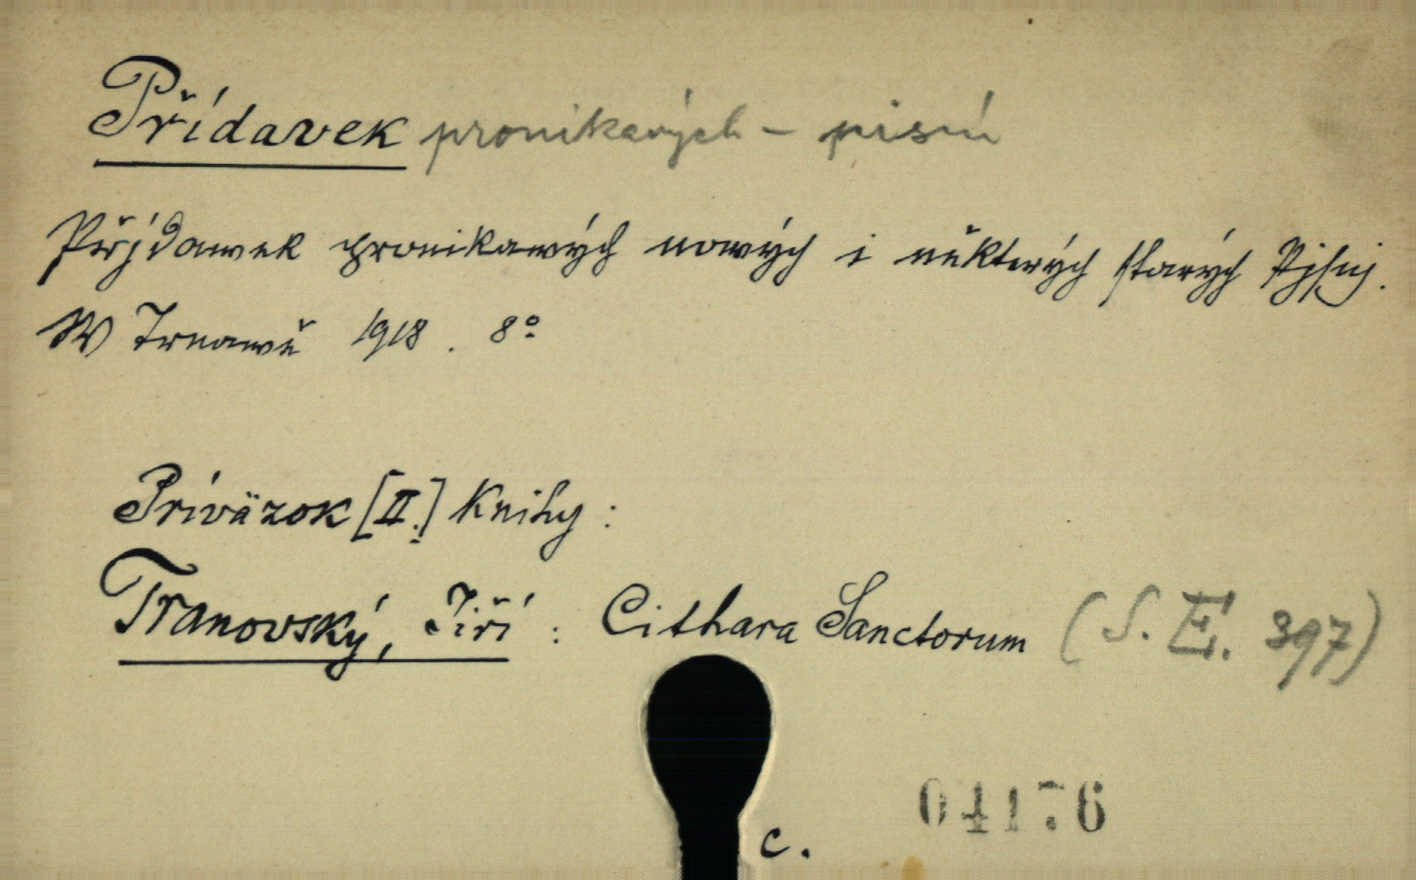 Přídavek pronikavých - pisní
Přjdawek pronikawých nowých i některých starých Pjsnj.
W Trnawě 1918. 8º
Príväzok [II.] Knihy:
Tranovský, Jiří: Cithara Sanctorum (S. E. 397)
04176
c.